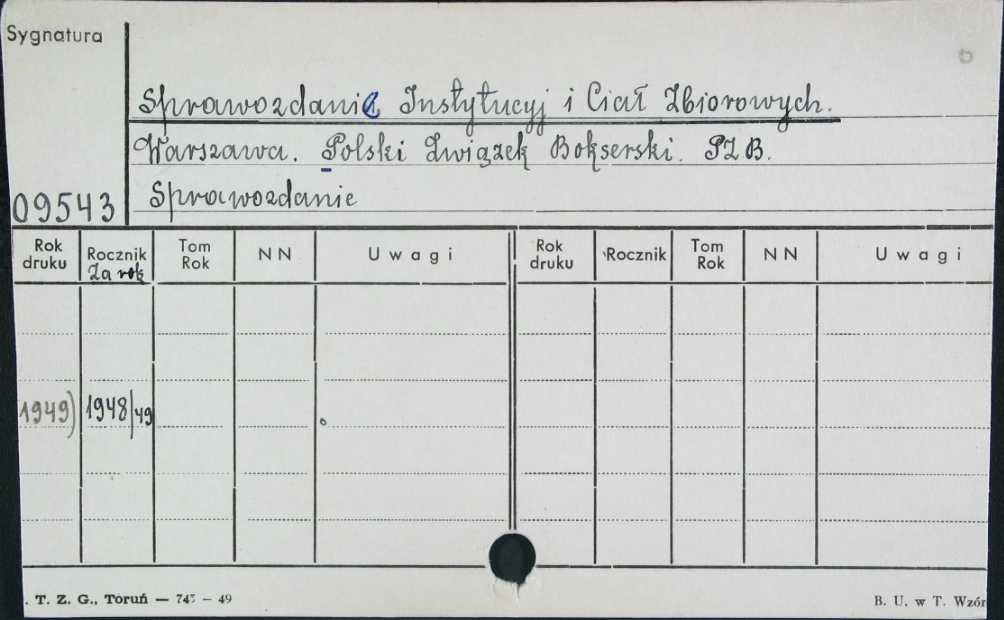 Sygnatura
Sprawozdania Instytucyj i Ciał Zbiorowych.
Warszawa. Polski Związek Bokserski. PZB.
09543 Sprawozdanie
Rok druku Rocznik Za rok Tom Rok NN Uwagi Rok druku Rocznik Tom Rok NN Uwagi
1949) 1948/49
. T. Z. G., Toruń — 745 – 49 B. U. w T. Wzór